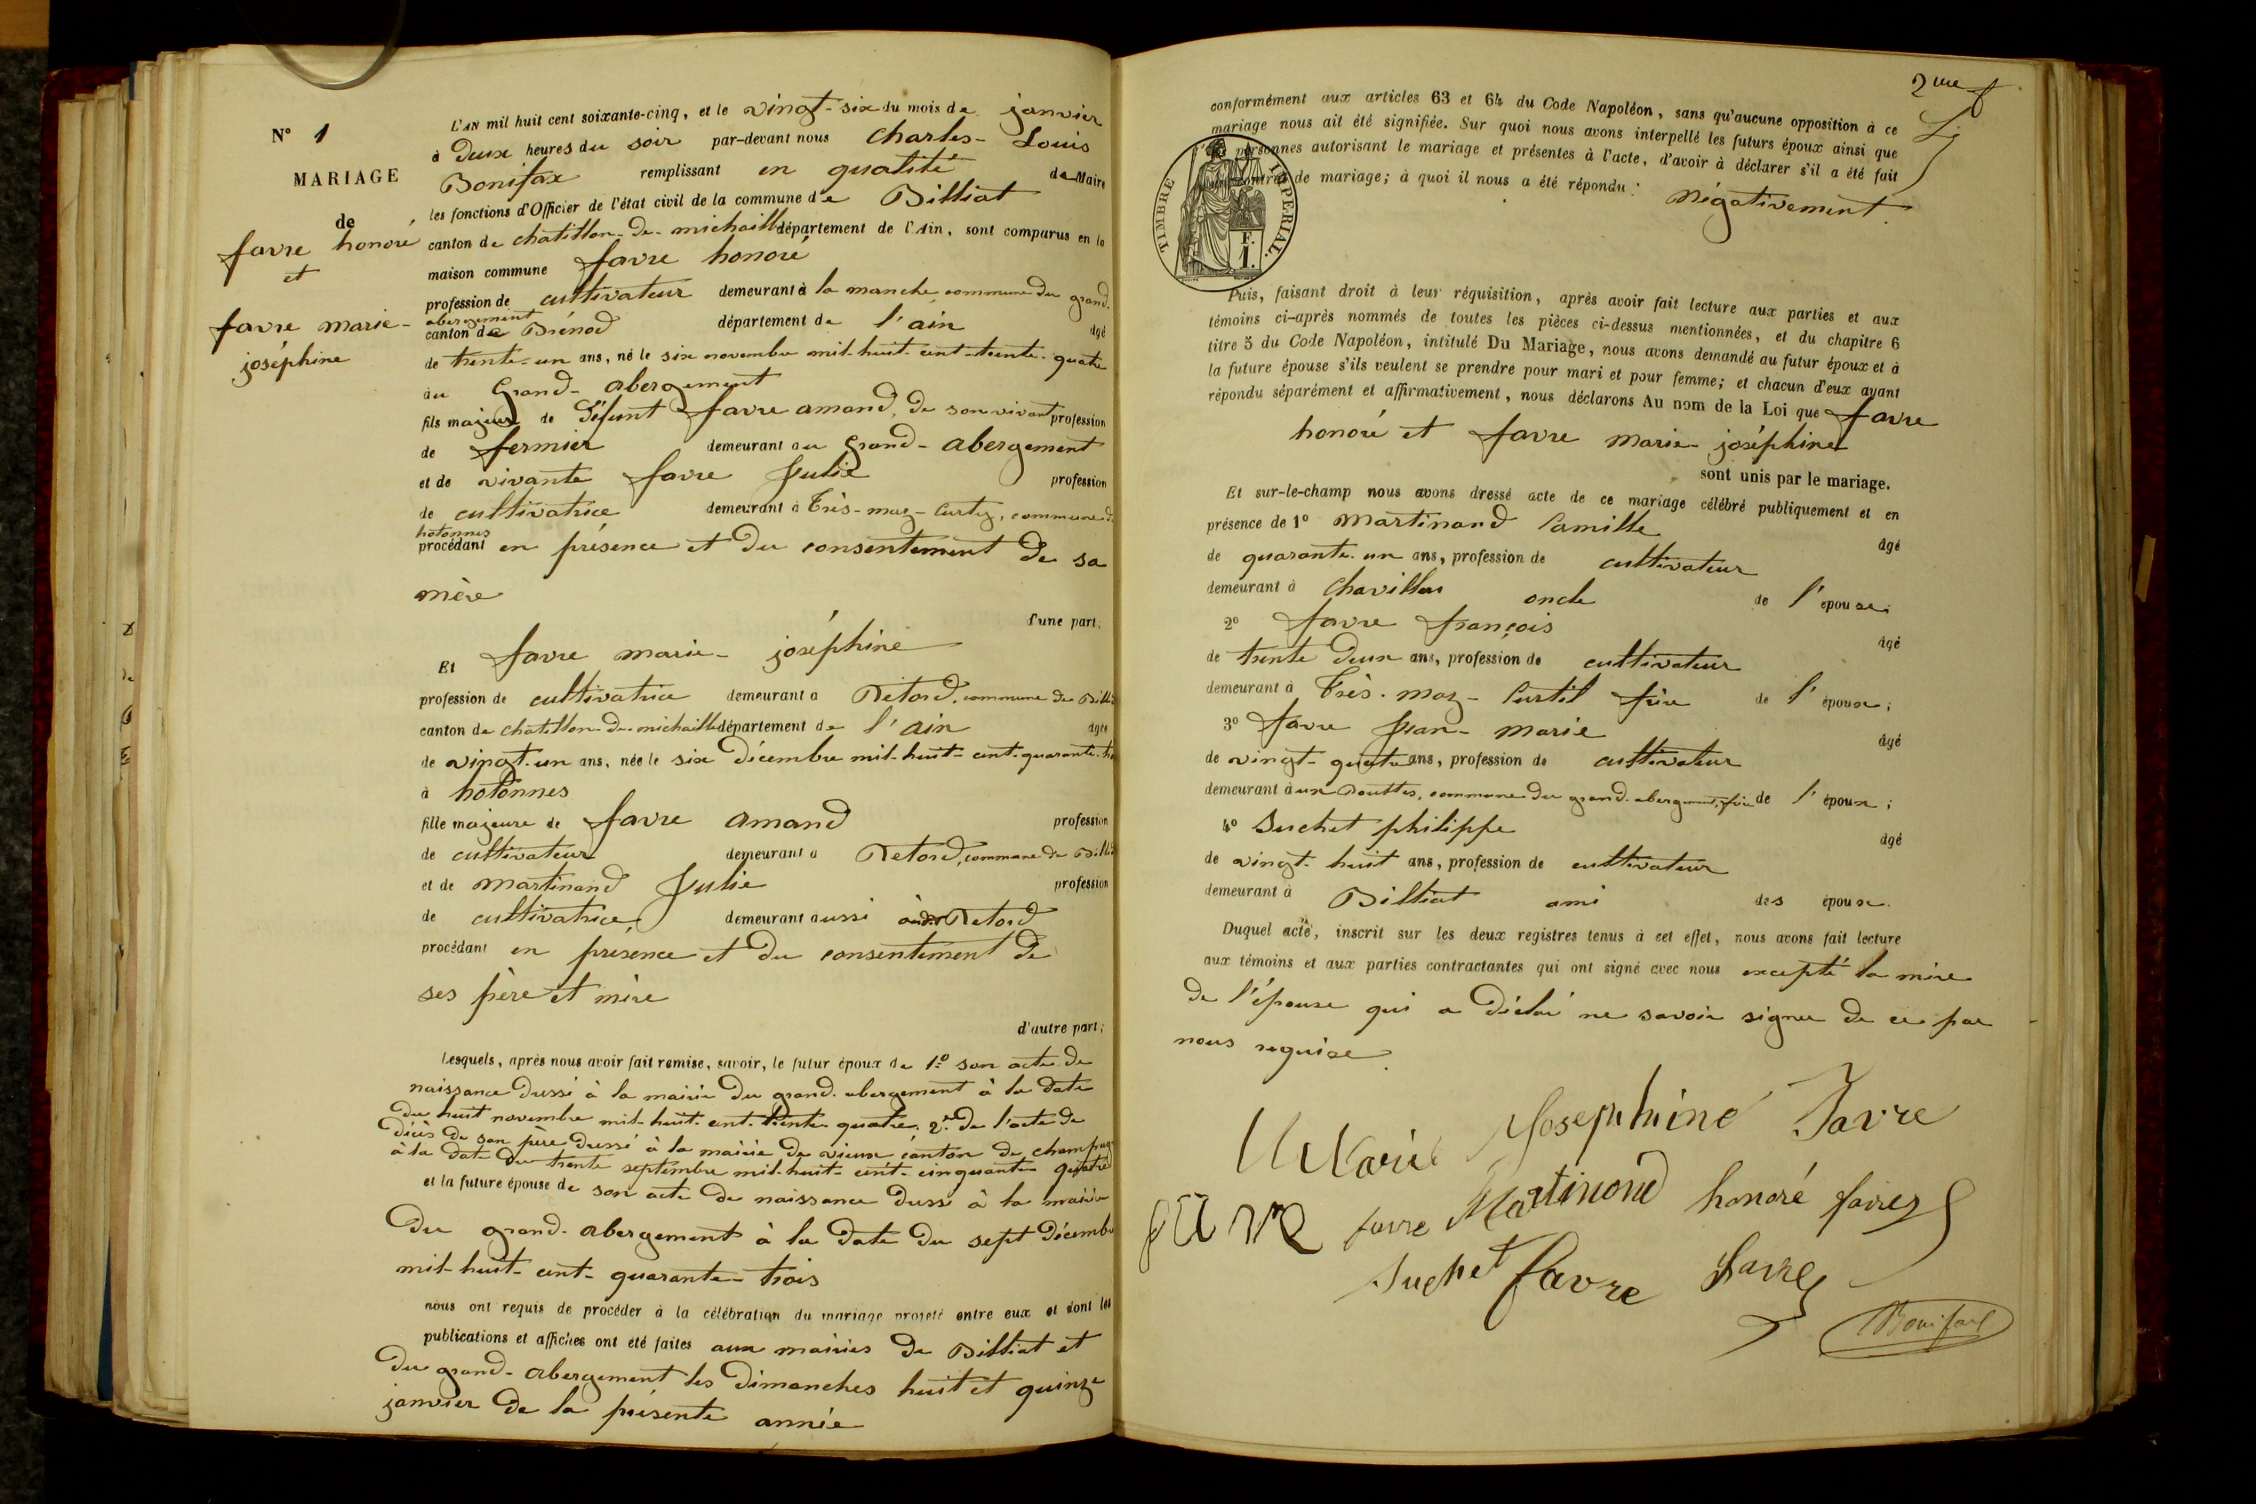 N° 1
MARIAGE
de
favre honoré
et
favre marie-
joséphine
L'AN mil huit cent soixante-cinq, et le vingt-six du mois de janvier
à deux heures du soir par-devant nous Charles-Louis
Bonifax remplissant en qualité de Maire
les fonctions d'Officier de l'état civil de la commune de Billiat
canton de chatillon-de-michaille département de l'Ain, sont comparus en la
maison commune favre honoré
profession de cultivateur demeurant à la manche commune du grand-
abergement
canton de Brénod département de l'ain âgé
de trente-un ans, né le six novembre mil-huit-cent-trente-quatre
au Grand-abergement
fils majeur de défunt favre amand, de son vivant profession
de fermier demeurant au Grand-abergement
et de vivante favre Julie profession
de cultivatrice demeurant à Très-maz-Curtiz, commune d
hotonnes
procédant en présence et du consentement de sa
mère
d'une part;
Et favre marie-joséphine
profession de cultivatrice demeurant a Retord, commune de Billi
canton de chatillon-de-michaille département de l'ain âgée
de vingt-un ans, née le six décembre mil-huit-cent-quarante-tro
à hotonnes
fille majeure de favre amand profession
de cultivateur demeurant a Retord, commune de Billi
et de martinand Julie profession
de cultivatrice demeurant aussi à Retord
procédant en présence et du consentement de
ses père et mère
d'autre part;
Lesquels, après nous avoir fait remise, savoir, le futur époux de 1° son acte de
naissance dressé à la mairie du grand-abergement à la date
du huit novembre mil-huit-cent-trente-quatre. 2° de l'acte de
décès de son père dressé à la mairie de vieux canton de champag
à la date du trente septembre mil-huit-cent-cinquante-quatre
et la future épouse de son acte de naissance dressé à la mairie
du grand-abergement à la date du sept décembre
mil-huit-cent-quarante-trois
nous ont requis de procéder à la célébration du mariage projeté entre eux et dont les
publications et affiches ont été faites aux mairies de Billiat et
du grand-abergement les dimanches huit et quinze
janvier de la présente année
2me
conformément aux articles 63 et 64 du Code Napoléon, sans qu'aucune opposition à ce
mariage nous ait été signifiée. Sur quoi nous avons interpellé les futurs époux ainsi que
personnes autorisant le mariage et présentes à l'acte, d'avoir à déclarer s'il a été fait
contrat de mariage; à quoi il nous a été répondu: négativement.
TIMBRE IMPÉRIAL.
F.
1.
Puis, faisant droit à leur réquisition, après avoir fait lecture aux parties et aux
témoins ci-après nommés de toutes les pièces ci-dessus mentionnées, et du chapitre 6
titre 5 du Code Napoléon, intitulé Du Mariage, nous avons demandé au futur époux et à
la future épouse s'ils veulent se prendre pour mari et pour femme; et chacun d'eux ayant
répondu séparément et affirmativement, nous déclarons Au nom de la Loi que favre
honoré et favre marie-joséphine
sont unis par le mariage.
Et sur-le-champ nous avons dressé acte de ce mariage célébré publiquement et en
présence de 1° martinand Camille âgé
de quarante-un ans, profession de cultivateur
demeurant à Chavillon oncle de l'épouse;
2° favre françois âgé
de trente deux ans, profession de cultivateur
demeurant à Très-maz-Curtil frère de l'époux;
3° favre Jean-marie âgé
de vingt-quatre ans, profession de cultivateur
demeurant aux routtes, commune du grand-abergement, frère de l'époux;
4° Suchet philippe âgé
de vingt-huit ans, profession de cultivateur
demeurant à Billiat ami des époux.
Duquel acte, inscrit sur les deux registres tenus à cet effet, nous avons fait lecture
aux témoins et aux parties contractantes qui ont signé avec nous excepté la mère
de l'épouse qui a déclaré ne savoir signer de ce par
nous requise.
Marie Josephine Favre
favre Martinand honoré favre
Suchet favre favre
Bonifax